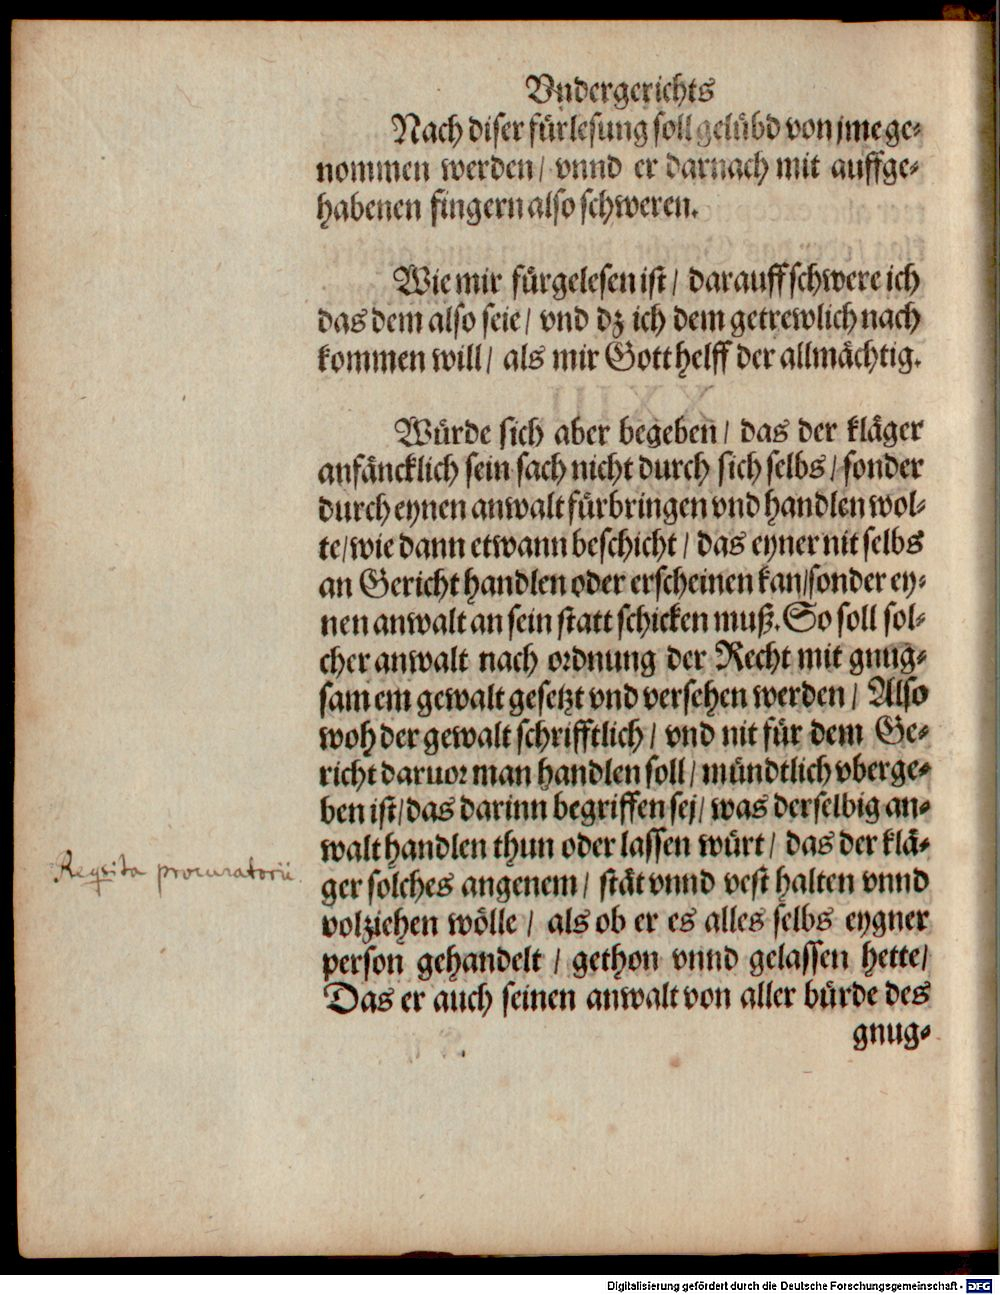 Vndergerichts
Nach diser fürlesung soll gelübd von jme ge-
nommen werden / vnnd er darnach mit auffge-
habenen fingern also schweren.
Wie mir fürgelesen ist / darauff schwere ich
das dem also seie / vnd dz ich dem getrewlich nach
kommen will / als mir Gott helff der allmächtig.
Würde sich aber begeben / das der kläger
anfäncklich sein sach nicht durch sich selbs / sonder
durch eynen anwalt fürbringen vnd handlen wol-
te / wie dann etwann beschicht / das eyner nit selbs
an Gericht handlen oder erscheinen kan / sonder ey-
nen anwalt an sein statt schicken muß. So soll sol-
cher anwalt nach ordnung der Recht mit gnug-
sam em gewalt gesetzt vnd versehen werden / Also
woh der gewalt schrifftlich / vnd nit für dem Ge-
richt daruor man handlen soll / mündtlich vberge-
ben ist / das darinn begriffen sej / was derselbig an-
walt handlen thun oder lassen würt / das der klä-
Reqsita procuratorii
ger solches angenem / stät vnnd vest halten vnnd
volziehen wölle / als ob er es alles selbs eygner
person gehandelt / gethon vnnd gelassen hette /
Das er auch seinen anwalt von aller bürde des
gnug-
Digitalisierung gefördert durch die Deutsche Forschungsgemeinschaft - DFG